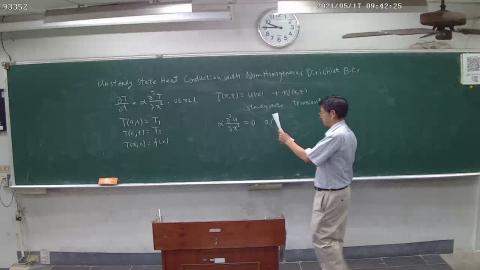 93352
2021/05/17 09:42:25
Unsteady State Heat Conduction with Nonhomogeneous Dirichlet B.C.
∂T/∂t = α ∂²T/∂x², 0≤x≤L
T(x,t) = u(x) + w(x,t)
steady state transient
T(0,t) = T₁
T(x,0) = f(x)
α ∂²u/∂x² = 0